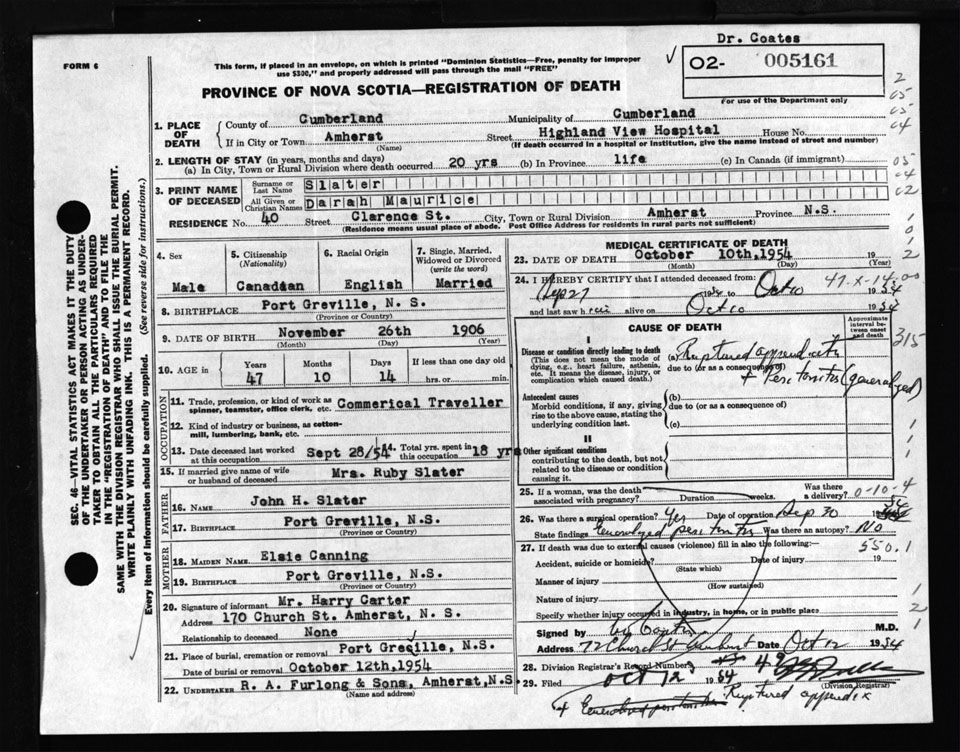 Dr. Coates
FORM 6
This form, if placed in an envelope, on which is printed "Dominion Statistics—Free, penalty for improper
use $300," and properly addressed will pass through the mail "FREE"
O2- 005161
For use of the Department only
PROVINCE OF NOVA SCOTIA—REGISTRATION OF DEATH
1. PLACE OF DEATH
County of Cumberland Municipality of Cumberland
If in City or Town Amherst Street Highland View Hospital House No.
(Name) (If death occurred in a hospital or institution, give the name instead of street and number)
2. LENGTH OF STAY (in years, months and days)
(a) In City, Town or Rural Division where death occurred 20 yrs (b) In Province life (c) In Canada (if immigrant)
3. PRINT NAME OF DECEASED
Surname or Last Name Slater
All Given or Christian Names Darah Maurice
RESIDENCE No. 40 Street Clarence St. City, Town or Rural Division Amherst Province N.S.
(Residence means usual place of abode. Post Office Address for residents in rural parts not sufficient)
4. Sex
Male
5. Citizenship (Nationality)
Canadian
6. Racial Origin
English
7. Single, Married, Widowed or Divorced (write the word)
Married
8. BIRTHPLACE Port Greville, N. S.
(Province or Country)
9. DATE OF BIRTH November 26th 1906
(Month) (Day) (Year)
10. AGE in Years 47 Months 10 Days 14 If less than one day old hrs. or min.
OCCUPATION
11. Trade, profession, or kind of work as spinner, teamster, office clerk, etc. Commerical Traveller
12. Kind of industry or business, as cotton-mill, lumbering, bank, etc.
13. Date deceased last worked at this occupation Sept 28/54 14. Total yrs. spent in this occupation 18 yrs
15. If married give name of wife or husband of deceased Mrs. Ruby Slater
FATHER
16. Name John H. Slater
17. Birthplace Port Greville, N.S.
(Province or Country)
MOTHER
18. Maiden Name Elsie Canning
19. Birthplace Port Greville, N.S.
(Province or Country)
20. Signature of informant Mr. Harry Carter
Address 170 Church St. Amherst, N. S.
Relationship to deceased None
21. Place of burial, cremation or removal Port Greville, N.S.
Date of burial or removal October 12th,1954
22. UNDERTAKER R. A. Furlong & Sons, Amherst,N.S
(Name and address)
MEDICAL CERTIFICATE OF DEATH
23. DATE OF DEATH October 10th,1954 19
(Month) (Day) (Year)
24. I HEREBY CERTIFY that I attended deceased from:
Sep 27 1954 to Oct 10 1954
and last saw h alive on Oct 10 1954
47-X-14-00
CAUSE OF DEATH
Approximate interval between onset and death
I
Disease or condition directly leading to death
(This does not mean the mode of dying, e.g., heart failure, asthenia, etc. It means the disease, injury, or complication which caused death.)
(a) Ruptured appendicitis
due to (or as a consequence of)
+ Peritonitis (generalized)
Antecedent causes
Morbid conditions, if any, giving rise to the above cause, stating the underlying condition last.
(b)
due to (or as a consequence of)
(c)
II
Other significant conditions
contributing to the death, but not related to the disease or condition causing it.
25. If a woman, was the death associated with pregnancy? Duration weeks. Was there a delivery?
0-10-4
26. Was there a surgical operation? Yes Date of operation Sep 30 1954
State findings Generalized peritonitis Was there an autopsy? No
27. If death was due to external causes (violence) fill in also the following:—
550.1
Accident, suicide or homicide? Date of injury 19
(State which)
Manner of injury
(How sustained)
Nature of injury
Specify whether injury occurred in industry, in home, or in public place
Signed by M.D.
Address 72 Church St Amherst Date Oct 12 1954
28. Division Registrar's Record Number 49
29. Filed Oct 12 1954
(Division Registrar)
+ Generalized peritonitis Ruptured appendix
SEC. 46—VITAL STATISTICS ACT MAKES IT THE DUTY
OF THE UNDERTAKER OR PERSON ACTING AS UNDER-
TAKER TO OBTAIN ALL THE PARTICULARS REQUIRED
IN THE "REGISTRATION OF DEATH" AND TO FILE THE
SAME WITH THE DIVISION REGISTRAR WHO SHALL ISSUE THE BURIAL PERMIT.
WRITE PLAINLY WITH UNFADING INK. THIS IS A PERMANENT RECORD.
Every item of information should be carefully supplied. (See reverse side for instructions.)
2
05
05
04
05
04
02
315